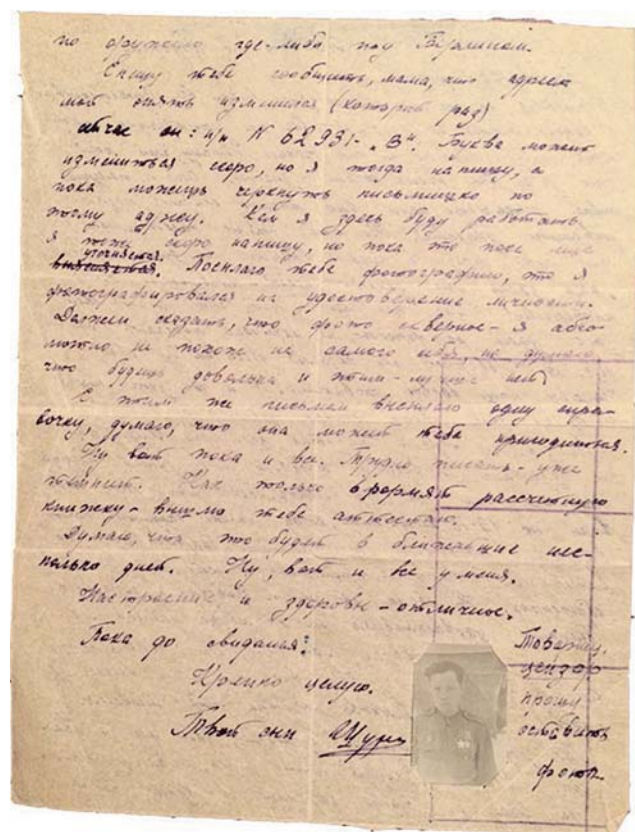 по дружно где-либо под Берлином.
Спешу тебе сообщить, мама, что адрес
мой опять изменился (который раз)
сейчас он: п/п N 62931- "В". Буква может
измениться скоро, но я тогда напишу, а
пока можешь черкнуть письмишко по
этому адресу. Кем я здесь буду работать
я тоже скоро напишу, но пока это пока еще
уточняется. Посылаю тебе фотографию, что я
фотографировался на удостоверение личности.
Должен сказать, что фото скверное - я абсо-
лютно не похож на самого себя, но думаю,
что будешь довольна и этим - лучше нет
С этим же письмом высылаю одну спра-
вочку, думаю, что она может тебе пригодиться.
Ну вот пока и все. Трудно писать - уже
темнеет. Как только оформят рассчетную
книжку - вышлю тебе аттестат.
Думаю, что это будет в ближайшие нес-
колько дней. Ну, вот и все у меня.
Настроение и здоровье - отличное.
Пока до свиданья!
Крепко целую.
Твой сын Шура
Товарищ
цензор
прошу
оставить
фото